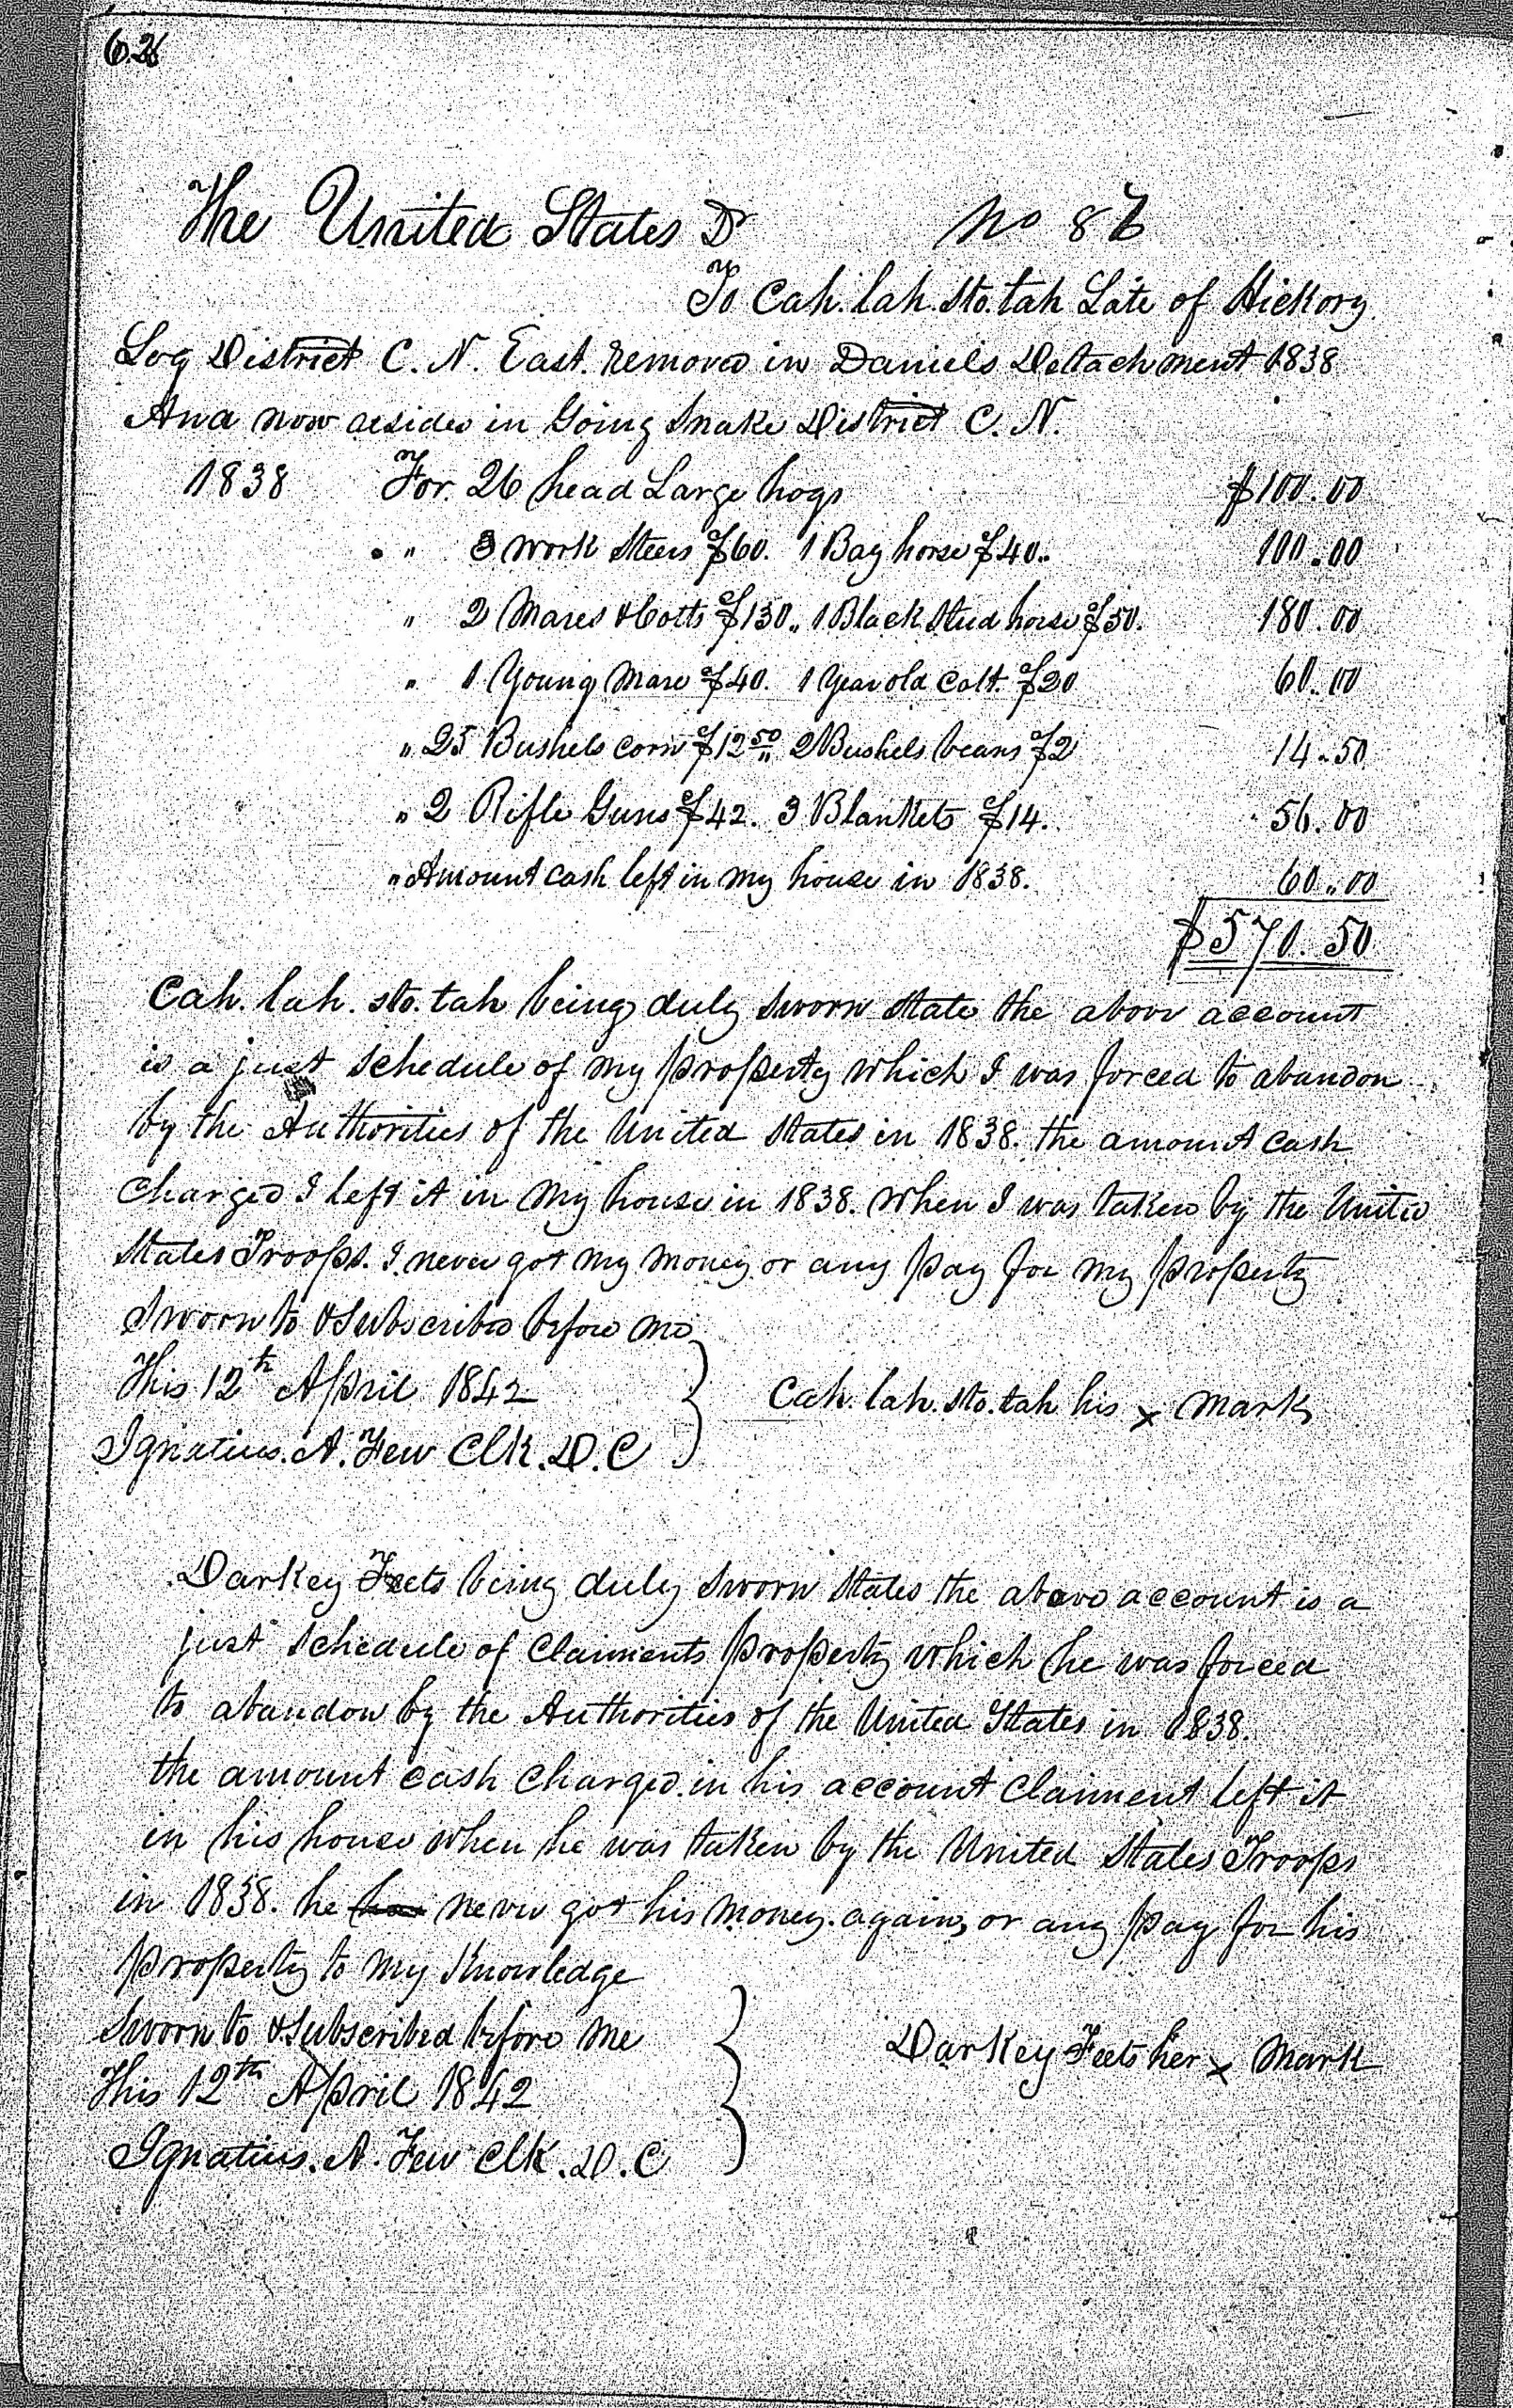 62
The United States Dr No 87
To Cah.lah.sto.tah Late of Hickory
Log District C. N. East. removed in Daniels Detachment 1838
And now resides in Going Snake District C. N.
1838 For 26 head Large hogs $100.00
" 3 work Steers $60. 1 Bay horse $40. 100.00
" 2 Mares & Colts $130. 1 Black Stud horse $50. 180.00
" 1 Young Mare $40. 1 Year old Colt. $20 60.00
" 25 Bushels corn $12.50 2 Bushels beans $2 14.50
" 2 Rifle Guns $42. 3 Blankets $14. 56.00
" Amount cash left in my house in 1838. 60.00
$570.50
Cah.lah.sto.tah being duly sworn state the above account
is a just schedule of my property which I was forced to abandon
by the Authorities of the United States in 1838. the amount cash
charged I left it in my house in 1838. when I was taken by the United
States Troops. I never got my money or any pay for my property
Sworn to & Subscribed before me
This 12th April 1842 Cah.lah.sto.tah his x mark
Ignatius. A. Few Clk. D. C
Darkey Feets being duly sworn states the above account is a
just schedule of Claiments property which he was forced
to abandon by the Authorities of the United States in 1838.
the amount cash charged in his account Claiment left it
in his house when he was taken by the United States Troops
in 1838. he has never got his money again, or any pay for his
property to my knowledge
Sworn to & Subscribed before me
Darkey Feets her x mark
This 12th April 1842
Ignatius. A. Few Clk. D. C